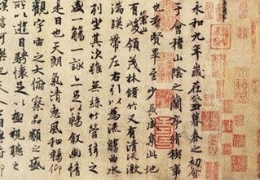 永和九年歲在癸丑暮春之初會
于會稽山陰之蘭亭脩稧事
也群賢畢至少長咸集此地
有崇山峻領茂林脩竹又有清流激
湍暎帶左右引以為流觴曲水
列坐其次雖無絲竹管弦之
盛一觴一詠亦足以暢敘幽情
是日也天朗氣清惠風和暢仰
觀宇宙之大俯察品類之盛
所以遊目騁懷足以極視聽之
娛信可樂也夫人之相與